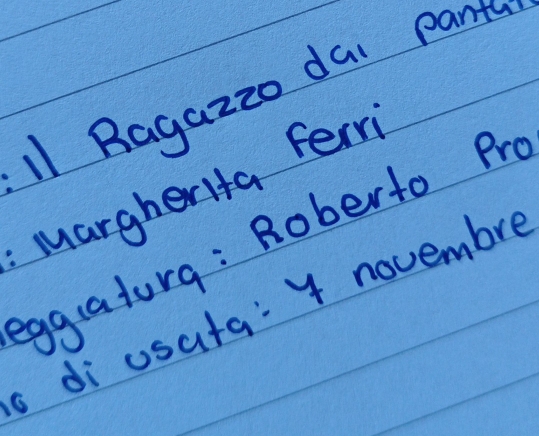 : Il Ragazzo dai
: Margherita Ferri
eggiatura: Roberto Pro
di usata: 7 novembre